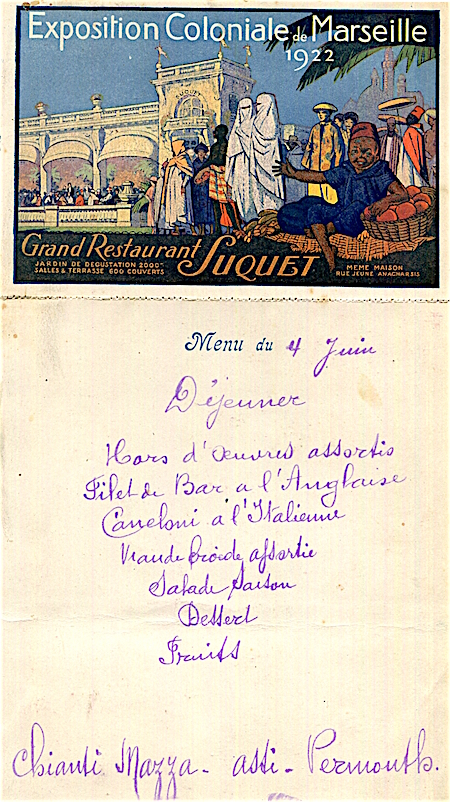 Exposition Coloniale de Marseille
1922
Grand Restaurant SUQUET
JARDIN DE DEGUSTATION 2000
SALLES & TERRASSE 600 COUVERTS
MEME MAISON
RUE JEUNE ANACHARSIS
Menu du 4 Juin
Déjeuner
Hors d'œuvres assortis
Filet de Bar a l'Anglaise
Caneloni à l'Italienne
Viande froide assortie
Salade Saison
Dessert
Fruits
Chianti Mazza - Asti - Vermouth.